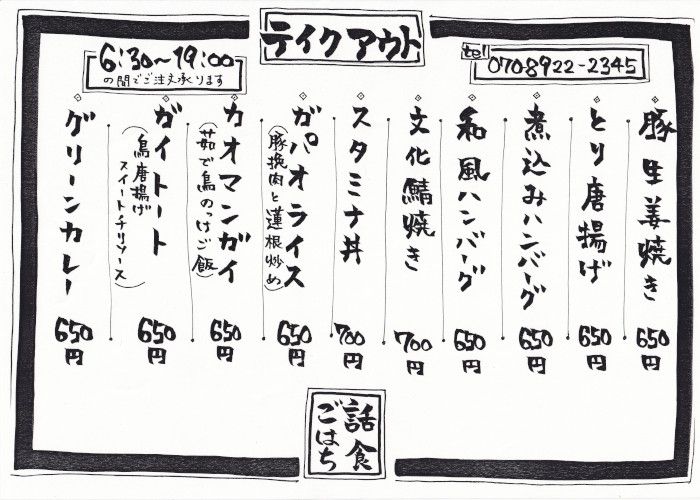 テイクアウト
6:30〜19:00
の間でご注文承ります
tel
070-8922-2345
豚生姜焼き
650円
とり唐揚げ
650円
煮込みハンバーグ
650円
和風ハンバーグ
650円
文化鯖焼き
700円
スタミナ丼
700円
ガパオライス
(豚挽肉と蓮根炒め)
650円
カオマンガイ
(茹で鳥のっけご飯)
650円
ガイトート
(鳥唐揚げ
スイートチリソース)
650円
グリーンカレー
650円
話食
ごはち